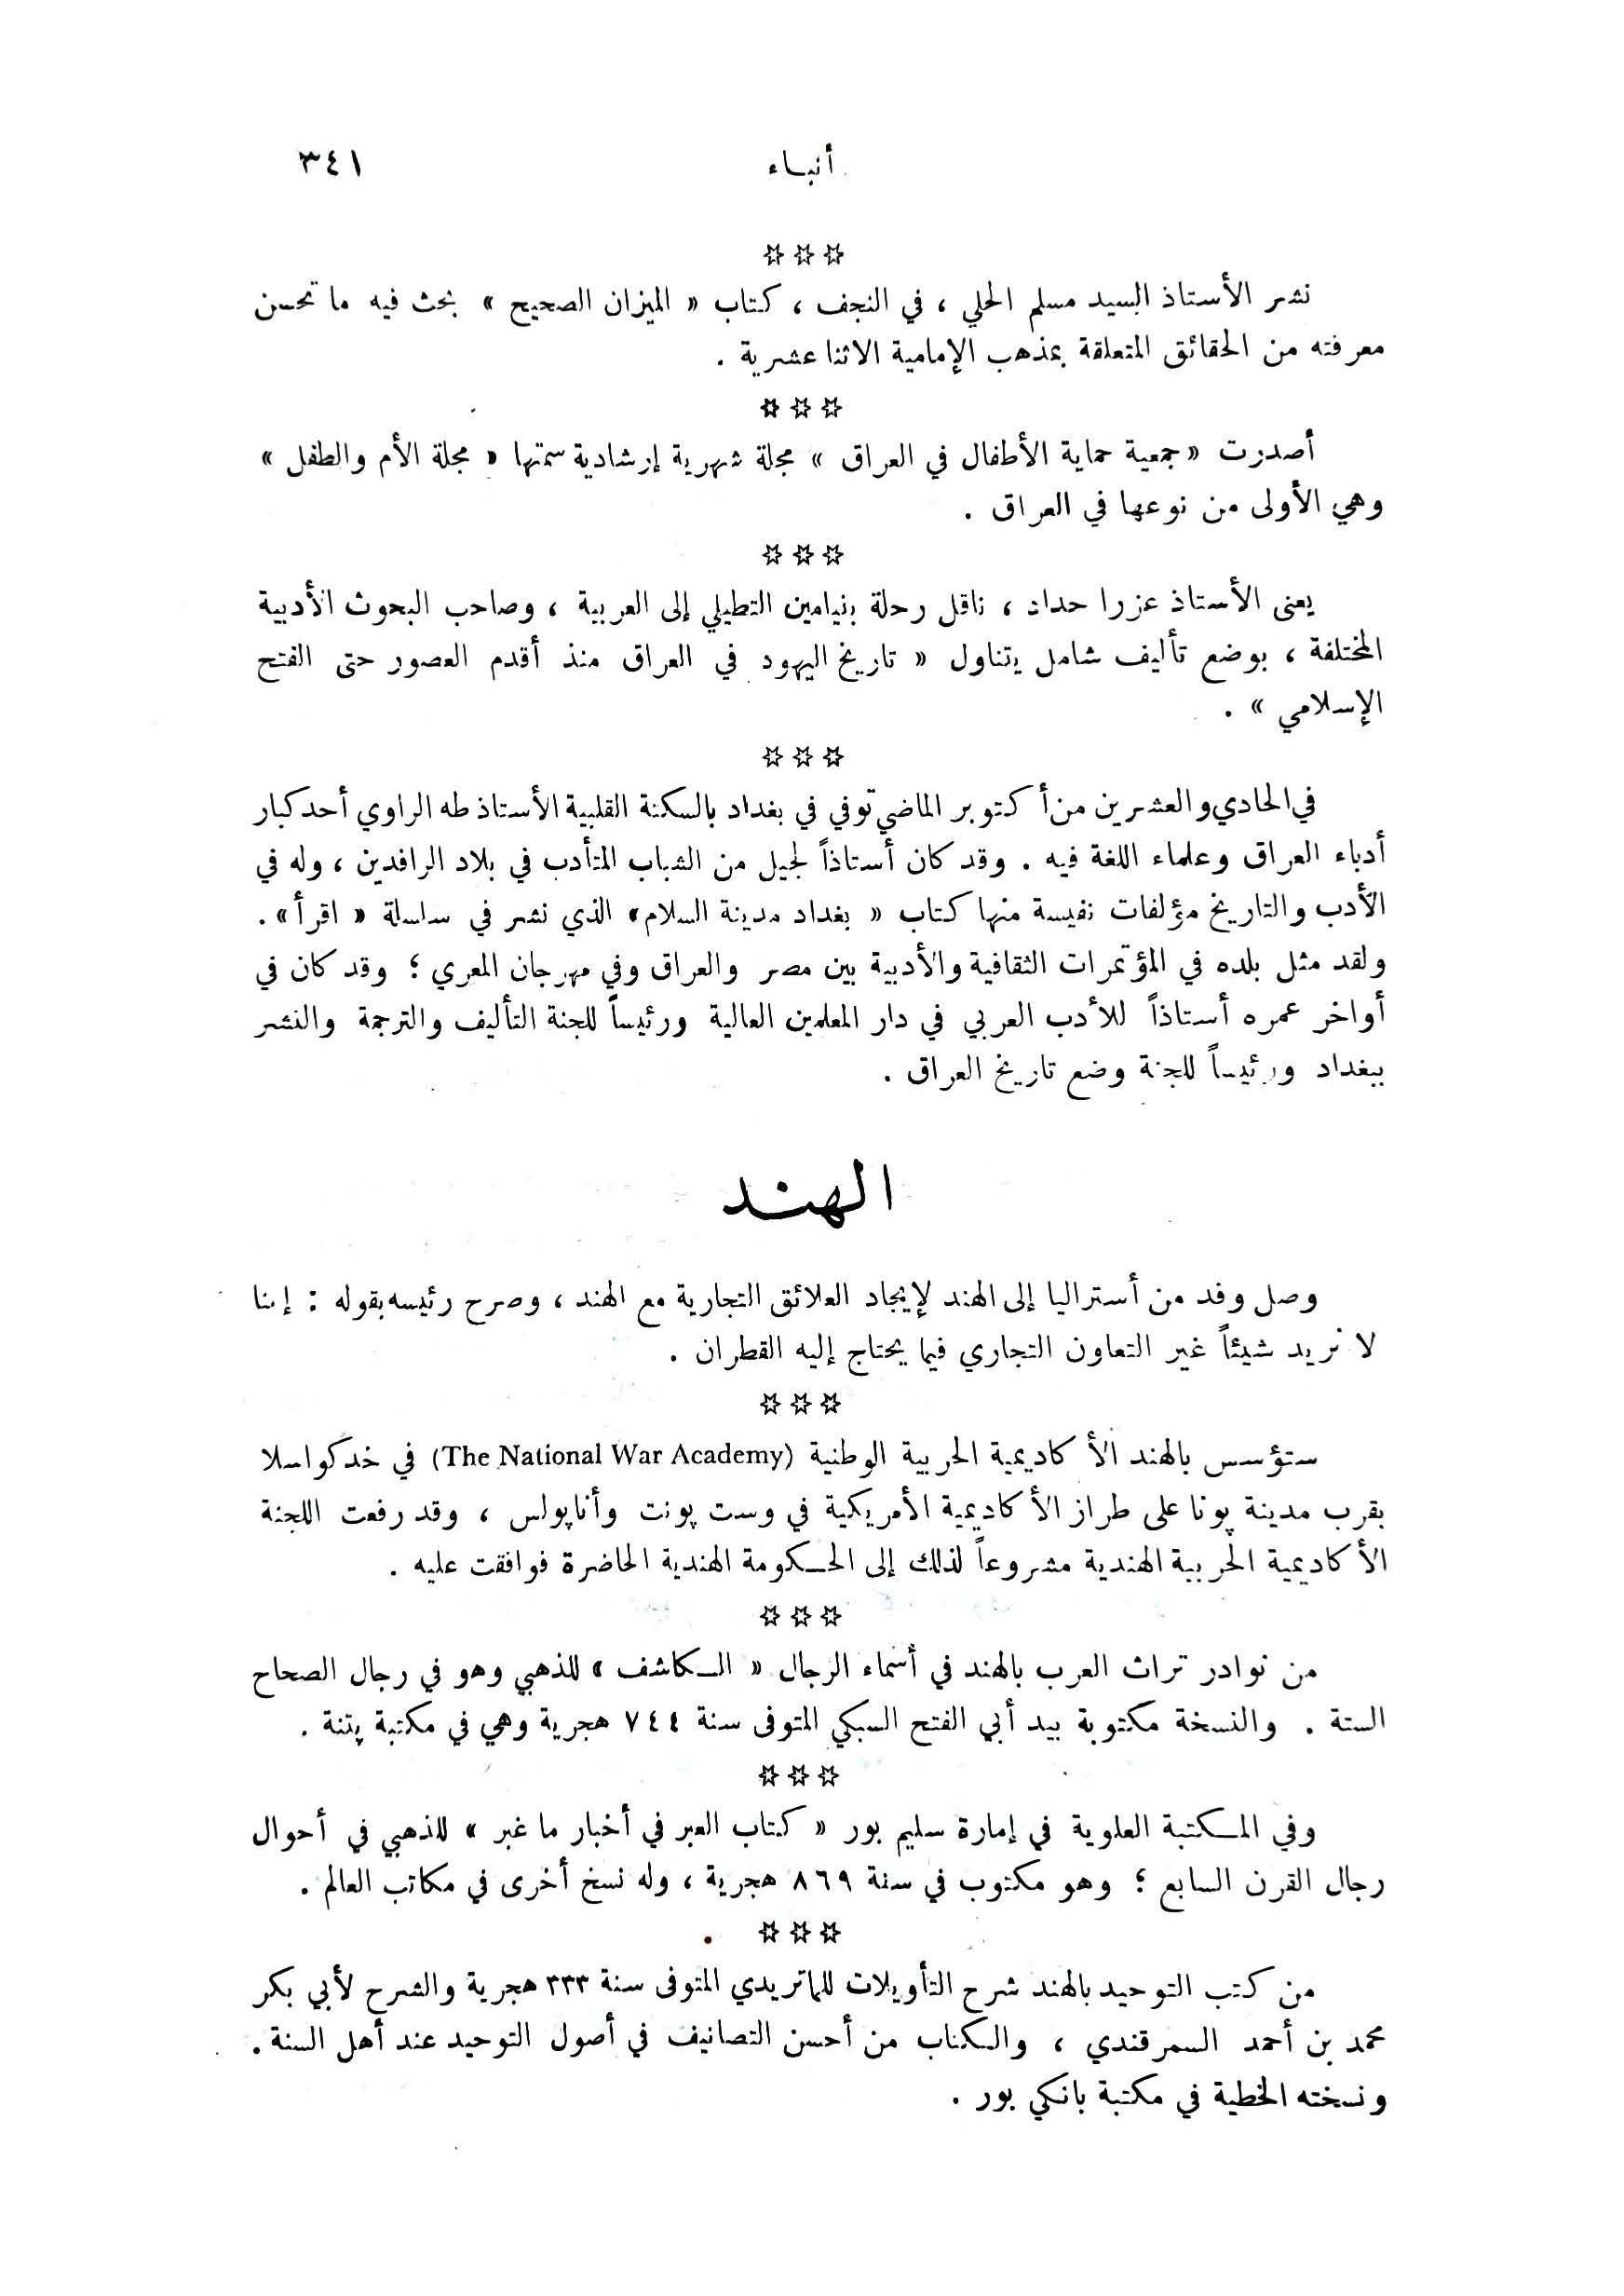 أنباء ٣٤١
☆☆☆
نشر الأستاذ السيد مسلم الحلي ، في النجف ، كتاب « الميزان الصحيح » بحث فيه ما تحسن
معرفته من الحقائق المتعلقة بمذهب الإمامية الاثنا عشرية .
☆☆☆
أصدرت « جمعية حماية الأطفال في العراق » مجلة شهرية إرشادية سمتها « مجلة الأم والطفل »
وهي الأولى من نوعها في العراق .
☆☆☆
يعنى الأستاذ عزرا حداد ، ناقل رحلة بنيامين التطيلي إلى العربية ، وصاحب البحوث الأدبية
المختلفة ، بوضع تأليف شامل يتناول « تاريخ اليهود في العراق منذ أقدم العصور حتى الفتح
الإسلامي » .
☆☆☆
في الحادي والعشرين من أكتوبر الماضي توفي في بغداد بالسكتة القلبية الأستاذ طه الراوي أحد كبار
أدباء العراق وعلماء اللغة فيه . وقد كان أستاذاً لجيل من الشباب المتأدب في بلاد الرافدين ، وله في
الأدب والتاريخ مؤلفات نفيسة منها كتاب « بغداد مدينة السلام» الذي نشر في سلسلة « اقرأ» .
ولقد مثل بلده في المؤتمرات الثقافية والأدبية بين مصر والعراق وفي مهرجان المعري ؛ وقد كان في
أواخر عمره أستاذاً للأدب العربي في دار المعلمين العالية ورئيساً للجنة التأليف والترجمة والنشر
ببغداد ورئيساً للجنة وضع تاريخ العراق .
الهند
وصل وفد من أستراليا إلى الهند لإيجاد العلائق التجارية مع الهند ، وصرح رئيسه بقوله : إننا
لا نريد شيئاً غير التعاون التجاري فيما يحتاج إليه القطران .
☆☆☆
ستؤسس بالهند الأكاديمية الحربية الوطنية (The National War Academy) في خدكواسلا
بقرب مدينة پونا على طراز الأكاديمية الأمريكية في وست پونت وأناپولس ، وقد رفعت اللجنة
الأكاديمية الحربية الهندية مشروعاً لذلك إلى الحكومة الهندية الحاضرة فوافقت عليه .
☆☆☆
من نوادر تراث العرب بالهند في أسماء الرجال « الكاشف » للذهبي وهو في رجال الصحاح
الستة . والنسخة مكتوبة بيد أبي الفتح السبكي المتوفى سنة ٧٤٤ هجرية وهي في مكتبة پتنة .
☆☆☆
وفي المكتبة العلوية في إمارة سليم بور « كتاب العبر في أخبار ما غبر » للذهبي في أحوال
رجال القرن السابع ؛ وهو مكتوب في سنة ٨٦٩ هجرية ، وله نسخ أخرى في مكاتب العالم .
☆☆☆
من كتب التوحيد بالهند شرح التأويلات للماتريدي المتوفى سنة ٣٣٣ هجرية والشرح لأبي بكر
محمد بن أحمد السمرقندي ، والكتاب من أحسن التصانيف في أصول التوحيد عند أهل السنة .
ونسخته الخطية في مكتبة بانكي بور .